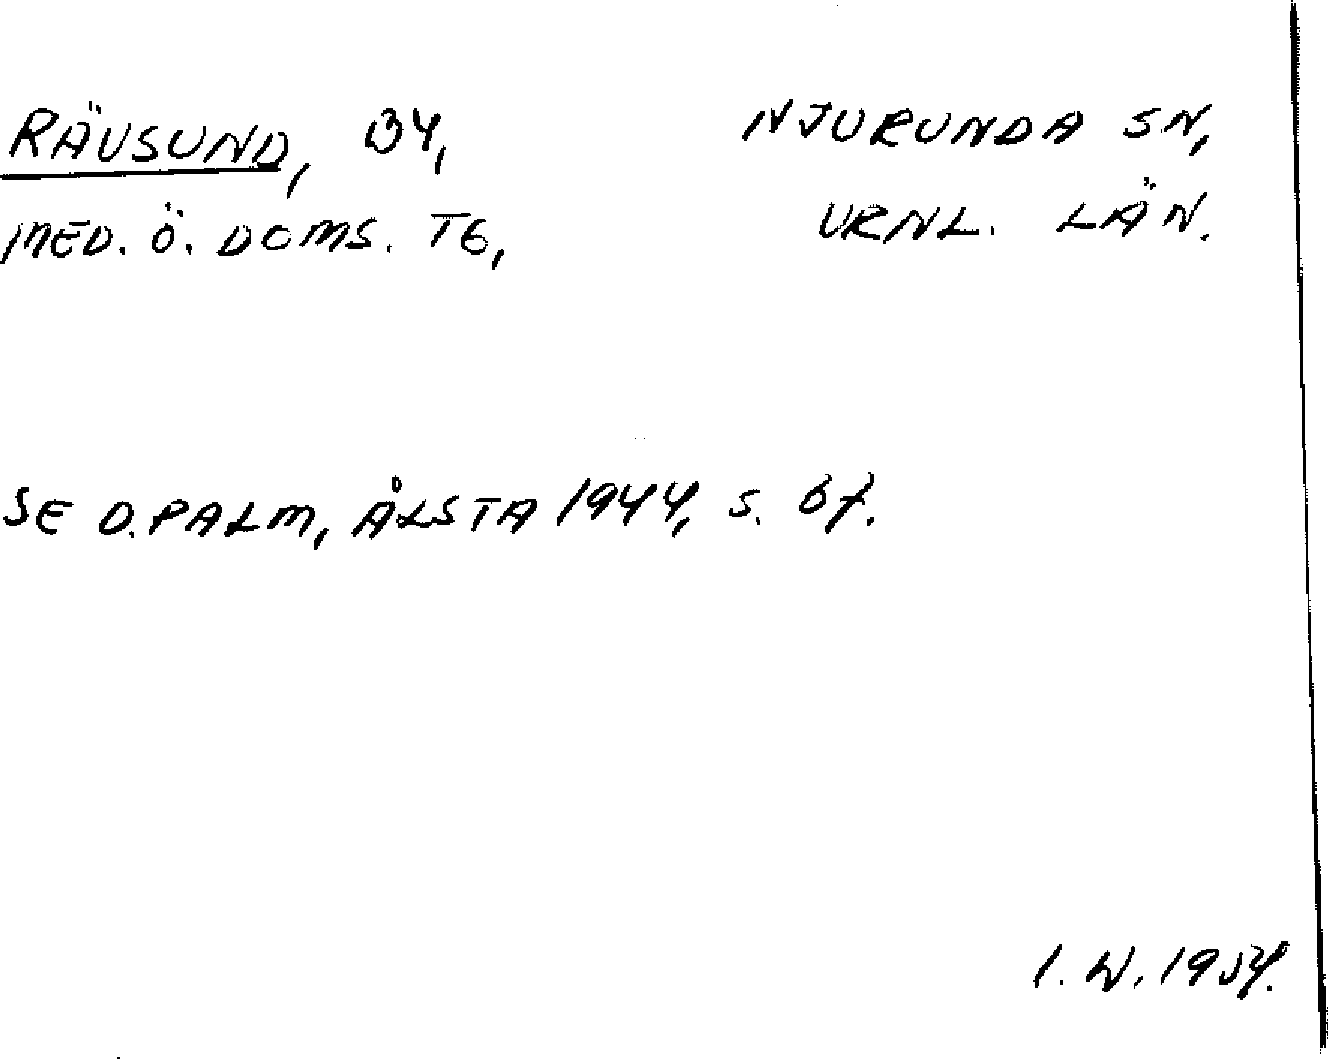 RÄVSUND, BY, NJURUNDA SN,
MED. Ö. DOMS. TG, VRNL. LÄN.
SE D. PALM, ÅLSTA 1944, S. 6f.
I. W. 1954.